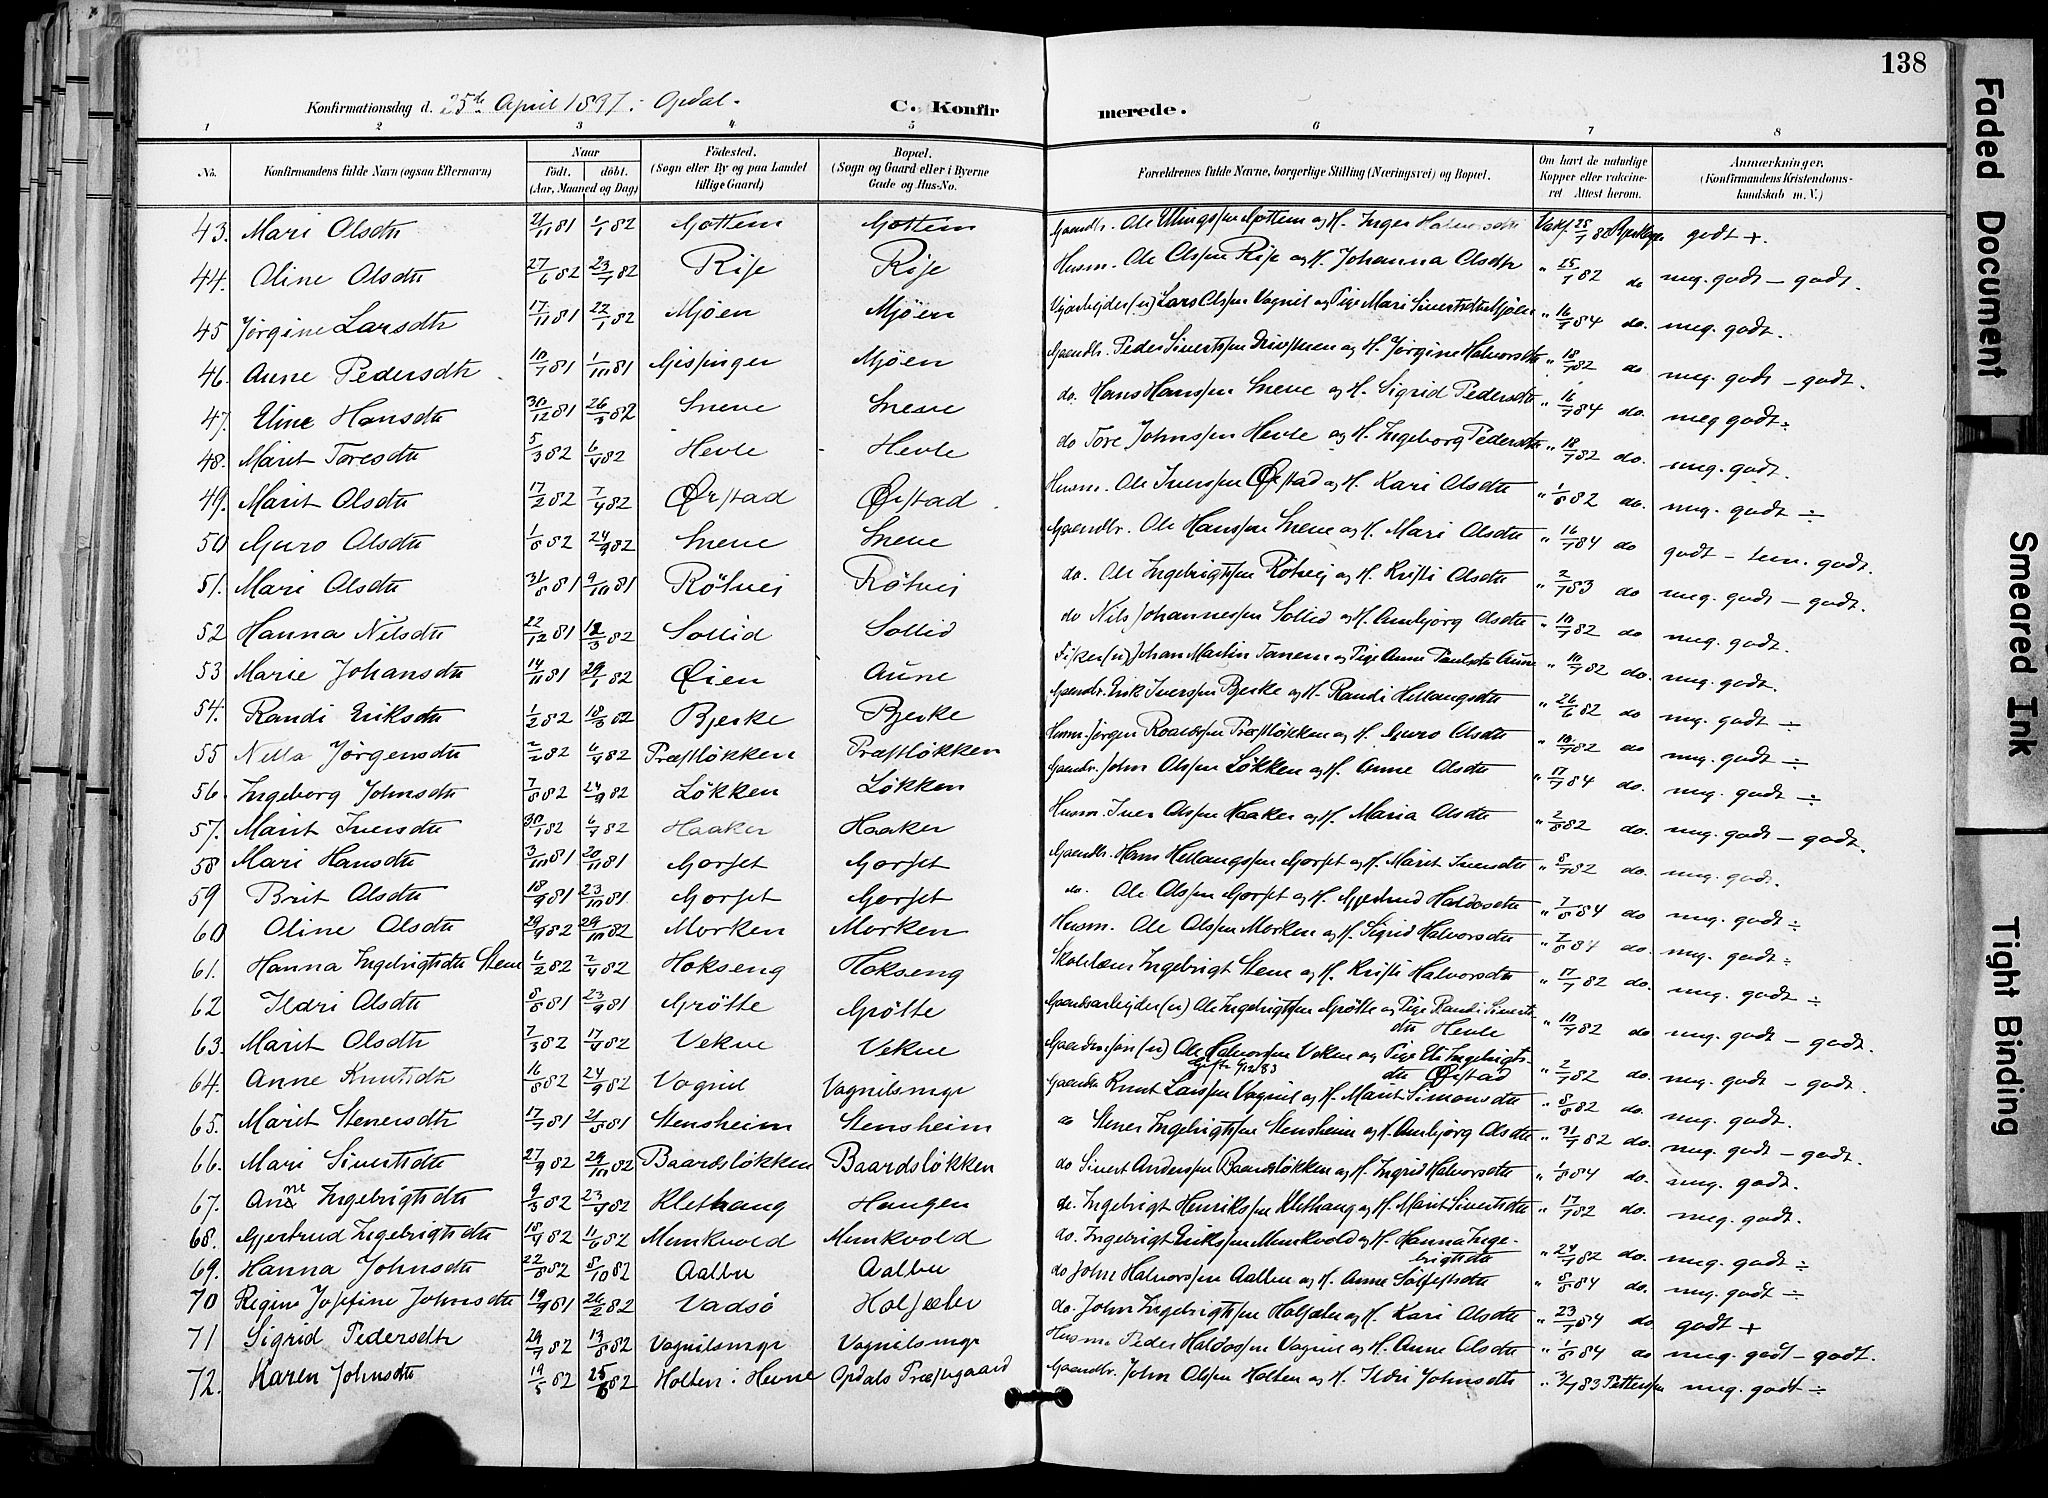 138
Konfirmationsdag d. 25de April 1897. Opdal. C. Konfirmerede.
1 2 3 4 5 6 7 8
No. Konfirmandens fulde Navn (ogsaa Efternavn) Naar født. døbt. (Aar, Maaned og Dag) Fødested. (Sogn eller By og paa Landet tillige Gaard) Bopæl. (Sogn og Gaard eller i Byerne Gade og Hus-No. Forældrenes fulde Navne, borgerlige Stilling (Næringsvei) og Bopæl. Om havt de naturlige Kopper eller vakcineret. Attest herom. Anmærkninger. (Konfirmandens Kristendomskundskab m. V.)
43. Mari Olsdtr 21/11 81 1/1 82 Gottem Gottem Gaardbr. Ole Ellingssen Gottem og H. Inger Halvorsdtr Vakc. 25/7 82 godt +.
44. Oline Olsdtr 27/6 82 23/7 82 Rise Rise Husm. Ole Olssen Rise og H. Johanna Olsdtr " 25/7 82 do meg. godt – godt.
45 Jørgine Larsdtr 17/11 81 22/1 82 Mjøen Mjøen Lars Olssen Vognil og Pige Mari Sivertsdtr Mjøen " 16/7 84 do. meg. godt.
46. Anne Pedersdtr 10/7 81 1/10 81 Gissinger Mjøen Gaardbr. Peder Sivertssen Drivstuen og H. Jørgine Halvorsdtr " 18/7 82 do meg. godt – godt.
47. Eline Hansdtr 30/12 81 26/3 82 Sneve Sneve do. Hans Hanssen Sneve og H. Sigrid Pedersdtr " 16/7 84 do. meg godt ÷
48. Marit Toresdtr 5/3 82 6/4 82 Hevle Hevle do Tore Johnssen Hevle og H. Ingeborg Pedersdtr " 18/7 82 do. meg. godt.
49. Marit Olsdtr 17/2 82 7/4 82 Ørstad Ørstad Husm. Ole Iverssen Ørstad og H. Kari Olsdtr " 1/8 82 do. meg. godt ÷
50 Guro Olsdtr 1/8 82 24/9 82 Sneve Sneve Gaardbr. Ole Hanssen Sneve og H. Mari Olsdtr " 16/7 84 do godt – tem. godt.
51. Mari Olsdtr 31/8 81 9/10 81 Røtvei Røtvei do. Ole Ingebrigtssen Røtvei og H. Kristi Olsdtr " 2/7 83 do meg. godt – godt.
52 Hanna Nilsdtr 22/12 81 12/3 82 Sollid Sollid do Nils Johannessen Sollid og H. Ambjørg Olsdtr " 10/7 82 do meg. godt.
53 Marie Johansdtr 14/11 81 29/1 82 Øien Aune Fisker (u) Johan Martin Tanem og Pige Anne Paulsdtr Aune " 10/7 82 do. meg. godt.
54. Randi Eriksdtr 1/2 82 18/3 82 Bjerke Bjerke Gaardbr. Erik Iverssen Bjerke og H. Randi Hellangsdtr " 26/6 82 do meg. godt ÷
55 Nella Jørgensdtr 2/2 82 6/4 82 Præstløkken Præstløkken Husm. Jørgen Roaldssen Præstløkken og H. Guro Olsdtr " 10/7 82 do meg. godt ÷
56. Ingeborg Johnsdtr 7/8 82 24/9 82 Løkken Løkken Gaardbr. John Olssen Løkken og H. Anne Olsdtr " 17/7 84 do. meg. godt ÷
57. Marit Iversdtr 30/1 82 6/4 82 Haaker Haaker Husm. Iver Olssen Haaker og H. Maria Olsdtr " 2/8 82 do. meg. godt – godt.
58 Mari Hansdtr 3/10 81 20/11 81 Gorset Gorset Gaardbr. Hans Hellangssen Gorset og H. Marit Iversdtr " 8/7 82 do. meg. godt.
59 Brit Olsdtr 18/9 81 23/10 81 Gorset Gorset do. Ole Olssen Gorset og H. Gjertrud Haldosdtr " 7/8 84 do meg. godt ÷
60 Oline Olsdtr 29/9 82 29/10 82 Morken Morken Husm. Ole Olssen Morken og H. Sigrid Halvorsdtr " 7/8 84 do. meg. godt ÷
61. Hanna Ingebrigtsdtr Stene 6/2 82 2/4 82 Hokseng Hokseng Skolelærer Ingebrigt Stene og H. Kristi Halvorsdtr " 17/7 82 do. meg. godt ÷
62 Ildri Olsdtr 8/8 81 23/9 81 Grøtte Grøtte Gaardsarbejder (u) Ole Ingebrigtssen Grøtte og Pige Randi Sivertsdtr Hevle " 10/7 82 do meg. godt – godt.
63. Marit Olsdtr 7/3 82 17/4 82 Vekve Vekve Gaardmsøn (u) Ole Halvorssen Vekve og Pige Eli Ingebrigtsdtr Ørstad " 2/7 82 do. meg. godt – godt.
64. Anne Knutsdtr 16/8 82 24/9 82 Vognil Vognilsmgr Gaardbr Knut Larssen Vognil og H. Marit Simonsdtr " 8/8 82 do. meg. godt.
65. Marit Stenersdtr 17/7 81 21/8 81 Stensheim Stensheim do Stener Ingebrigtssen Stensheim og H. Ambjørg Olsdtr " 31/7 82 do. meg. godt – godt.
66. Mari Sivertsdtr 27/9 82 29/10 82 Baardsløkken Baardsløkken do Sivert Anderssen Baardsløkken og H. Ingrid Halvorsdtr " 1/8 84 do. meg. godt.
67. Anne Ingebrigtsdtr 9/3 82 23/4 82 Klethaug Haugen do. Ingebrigt Henrikssen Klethaug og H. Marit Sivertsdtr " 17/7 82 do. meg. godt.
68. Gjertrud Ingebrigtsdtr 18/4 82 11/6 82 Munkvold Munkvold do. Ingebrigt Erikssen Munkvold og H. Hanna Ingebrigtsdtr " 24/7 82 do. meg. godt ÷
69. Hanna Johnsdtr 22/8 82 8/10 82 Aalbu Aalbu do John Halvorssen Aalbu og H. Anne Solfestsdtr " 8/8 84 do. meg. godt ÷
70 Regine Josefine Johnsdtr 19/9 81 26/2 82 Vadsø Holsæter do. John Ingebrigtssen Holsæter og H. Kari Olsdtr " 23/7 84 do godt +
71 Sigrid Pedersdtr 29/7 82 13/8 82 Vognilsmgr Vognilsmgr Husm. Peder Haldossen Vognil og H. Anne Olsdtr " 1/8 84 do meg. godt – godt.
72. Karen Johnsdtr 19/5 82 25/6 82 Holten i Hevne Opdals Præstegaard Gaardbr. John Olssen Holten og H. Ildri Johnsdtr " 3/7 83 Pettersen meg. godt ÷
Faded Document
Smeared Ink
Tight Binding